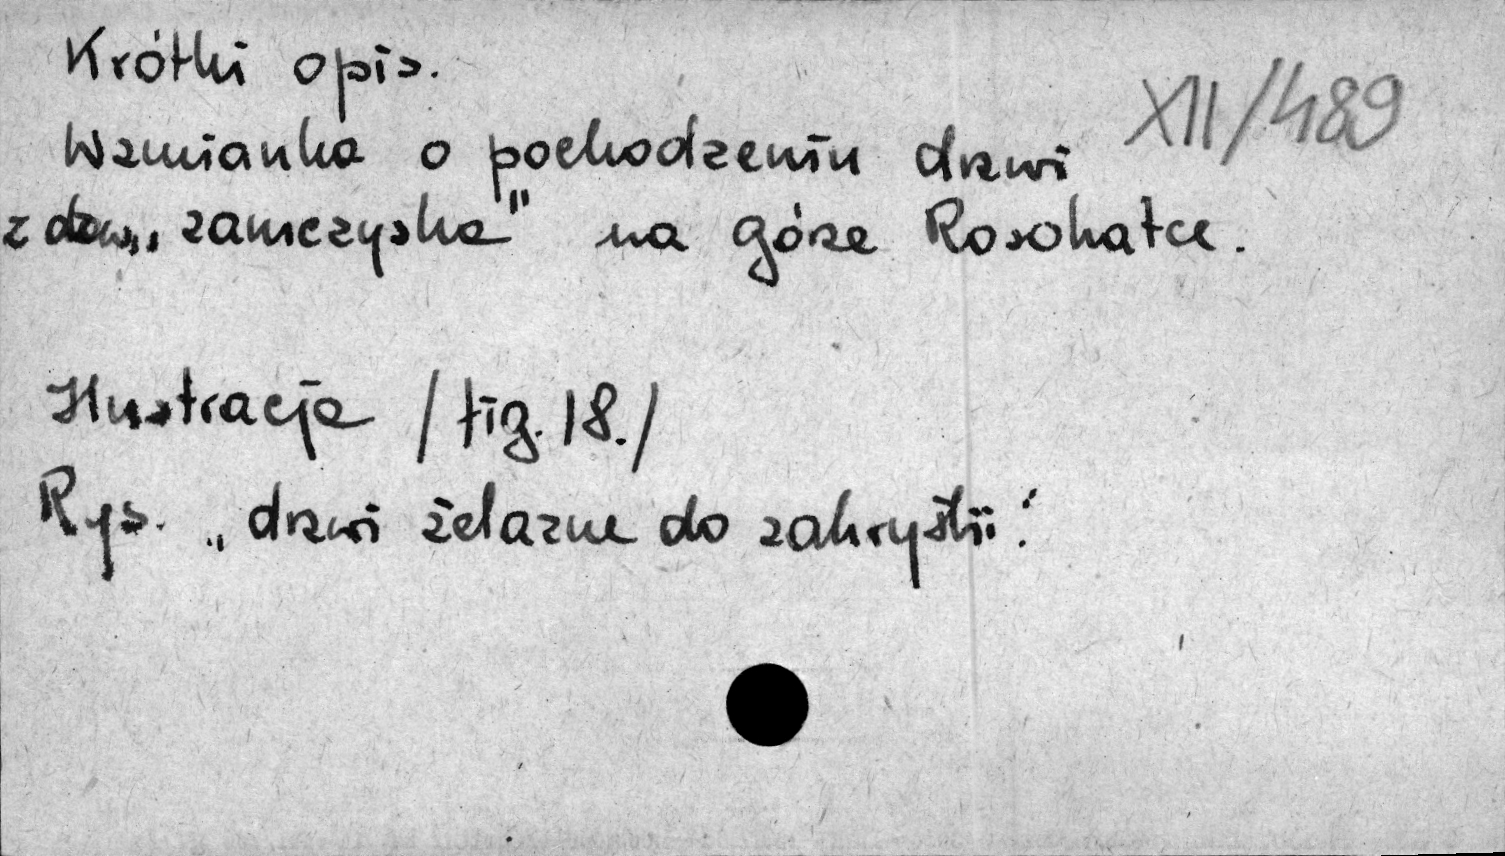 Krótki opis.
XII/489
Wzmianka o pochodzeniu drzwi
z daw. „zamczyska" na górze Rosohatce.
Ilustracja /fig. 18./
Rys. „drzwi żelazne do zakrystii".